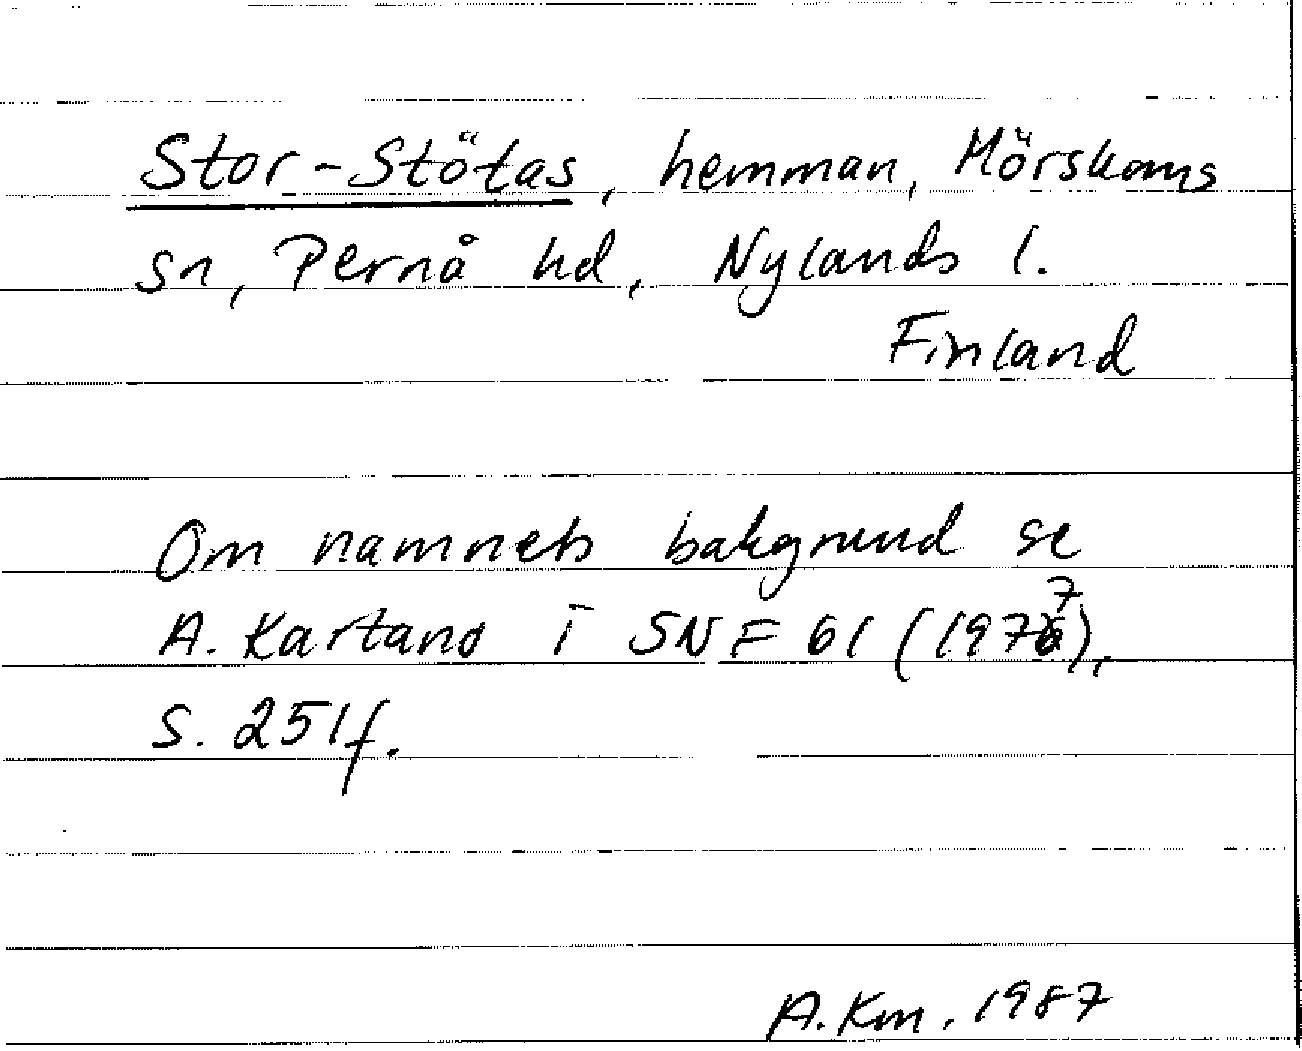 Stor-Stötas, hemman, Mörskoms
sn, Pernå hd, Nylands l.
Finland
Om namnets bakgrund se
A. Kartano i SNF 61 (1977),
s. 251f.
A.Km. 1987